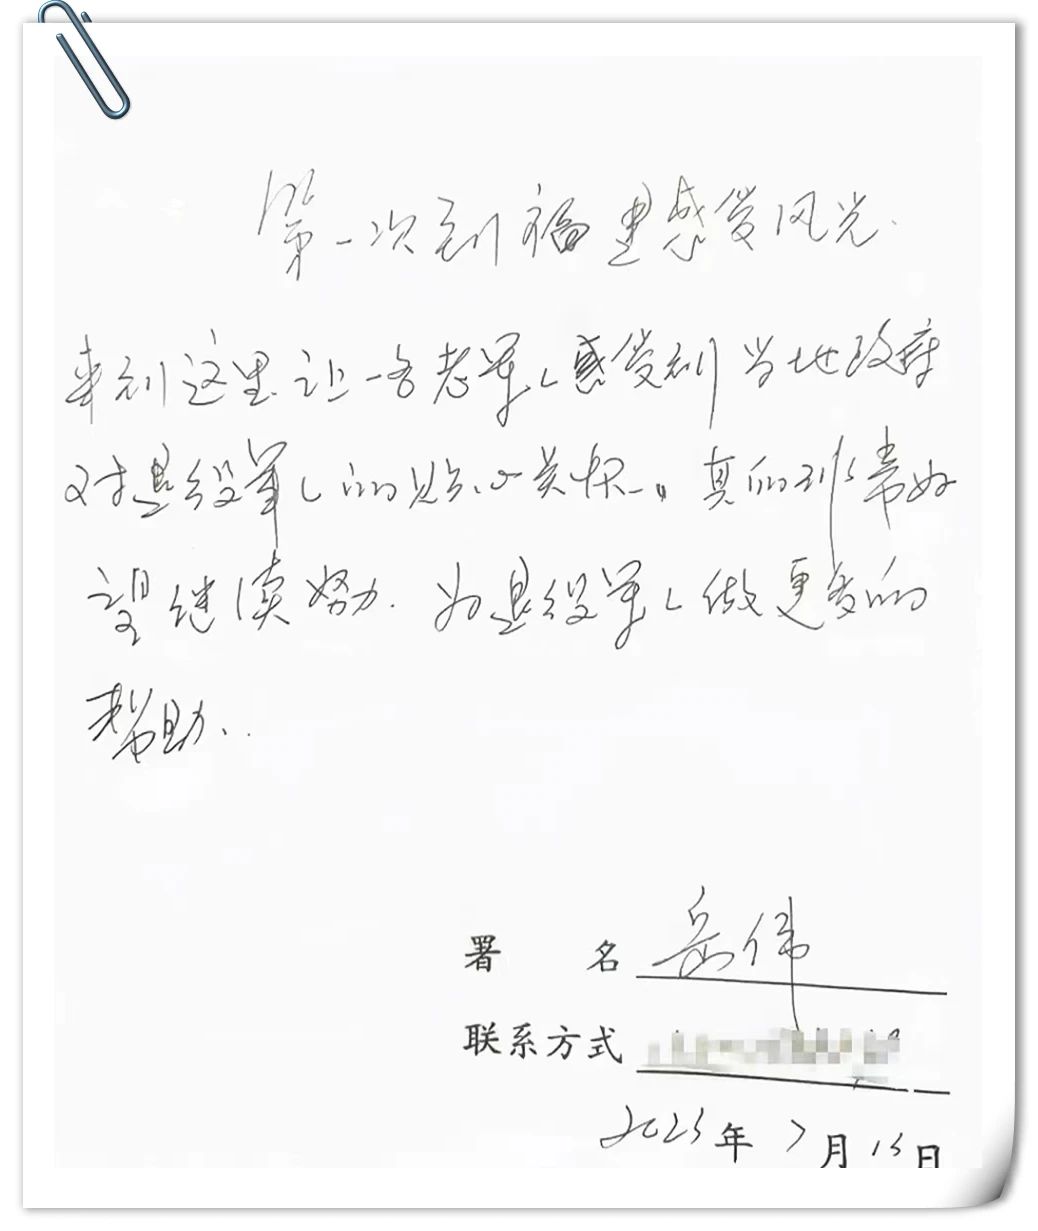 第一次到福里感受风光.
来到这里.让一名老军人感受到当地政府
对退役军人的贴心关怀。真的非常好
望继续努力.为退役军人做更多的
帮助..
署 名 岳伟
联系方式
2023年7月13日